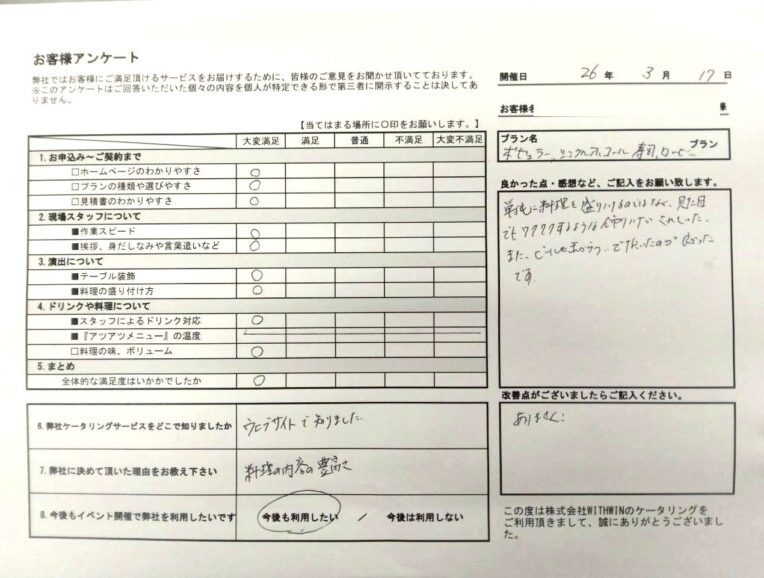 お客様アンケート
弊社ではお客様にご満足頂けるサービスをお届けするために、皆様のご意見をお聞かせ頂いております。
※このアンケートはご回答いただいた個々の内容を個人が特定できる形で第三者に開示することは決してあ
りません。
【当てはまる場所に〇印をお願いします。】
大変満足 満足 普通 不満足 大変不満足
1.お申込み～ご契約まで
□ホームページのわかりやすさ 〇
□プランの種類や選びやすさ 〇
□見積書のわかりやすさ 〇
2.現場スタッフについて
■作業スピード 〇
■挨拶、身だしなみや言葉遣いなど 〇
3.演出について
■テーブル装飾 〇
■料理の盛り付け方 〇
4.ドリンクや料理について
■スタッフによるドリンク対応 〇
■『アツアツメニュー』の温度
□料理の味、ボリューム 〇
5.まとめ
全体的な満足度はいかかでしたか 〇
6.弊社ケータリングサービスをどこで知りましたか ウェブサイトで知りました
7.弊社に決めて頂いた理由をお教え下さい 料理の内容の豊富さ
8.今後もイベント開催で弊社を利用したいです 今後も利用したい / 今後は利用しない
開催日 26 年 3 月 17 日
お客様名 様
プラン名
ポピュラー、 寿司、コーヒー プラン
良かった点・感想など、ご記入をお願い致します。
単純に料理を盛り付けるのではなく、見た目
でもワクワクするような がされていました。
また、ビールも で良かった
です
改善点がございましたらご記入ください。
ありません!
この度は株式会社WITHWINのケータリングを
ご利用頂きまして、誠にありがとうございまし
た。